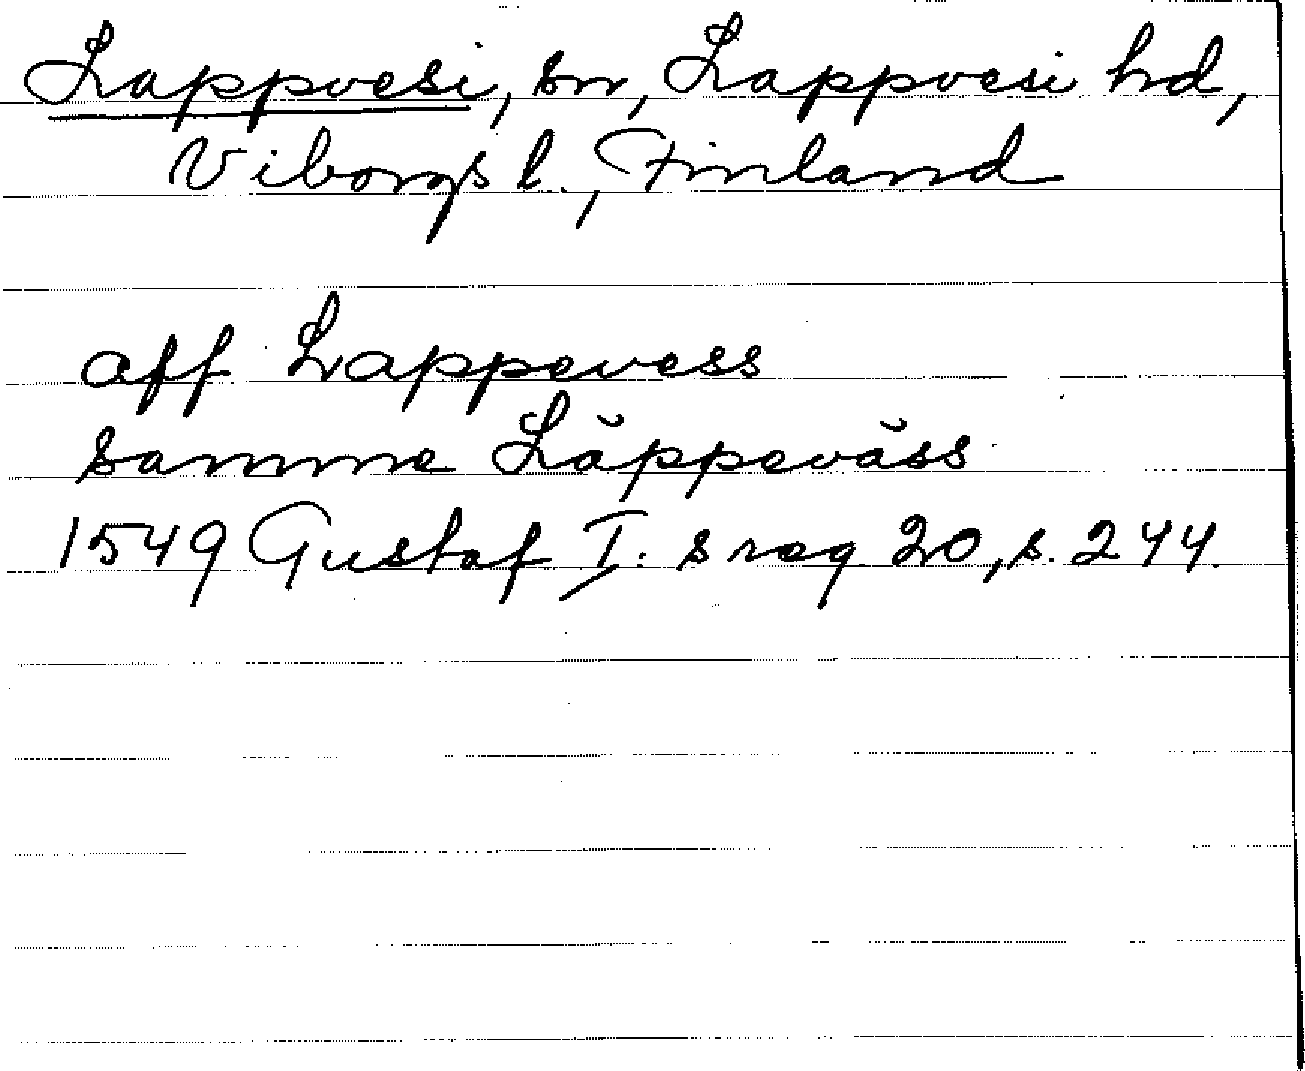 Lappvesi, sn, Lappvesi hd,
Viborgs l., Finland
aff Lappevess
samme Läppeväss
1549 Gustaf I:s reg 20, s. 244.